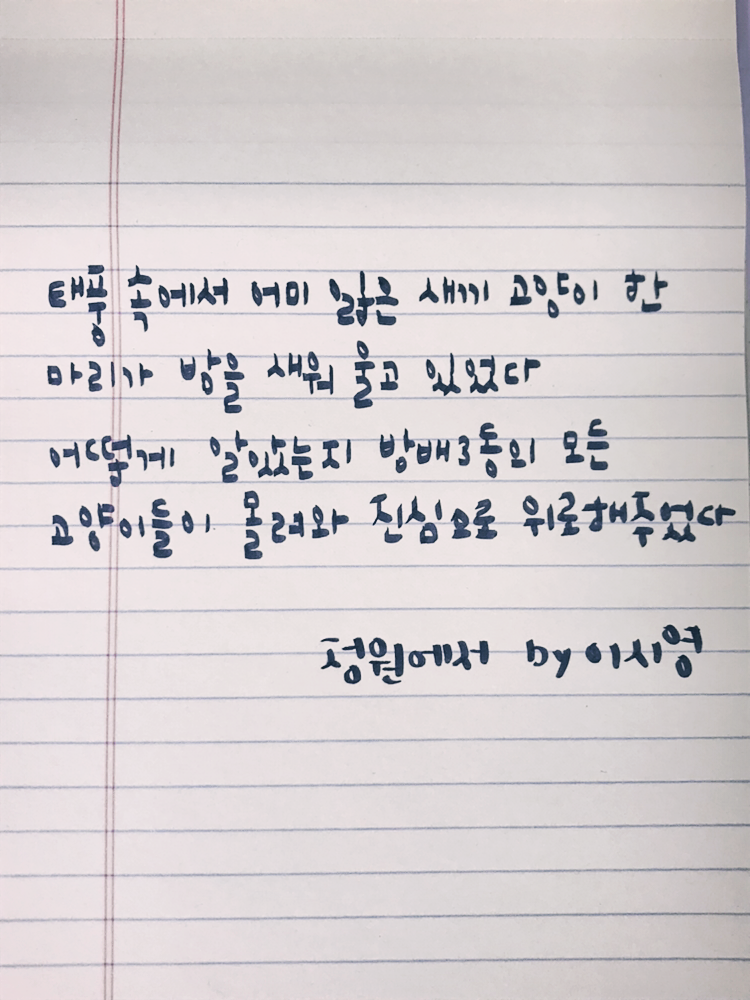 태풍 속에서 어미 잃은 새끼 고양이 한
마리가 밤을 새워 울고 있었다
어떻게 알았는지 방배3동의 모든
고양이들이 몰려와 진심으로 위로해주었다
정원에서 by 이시영